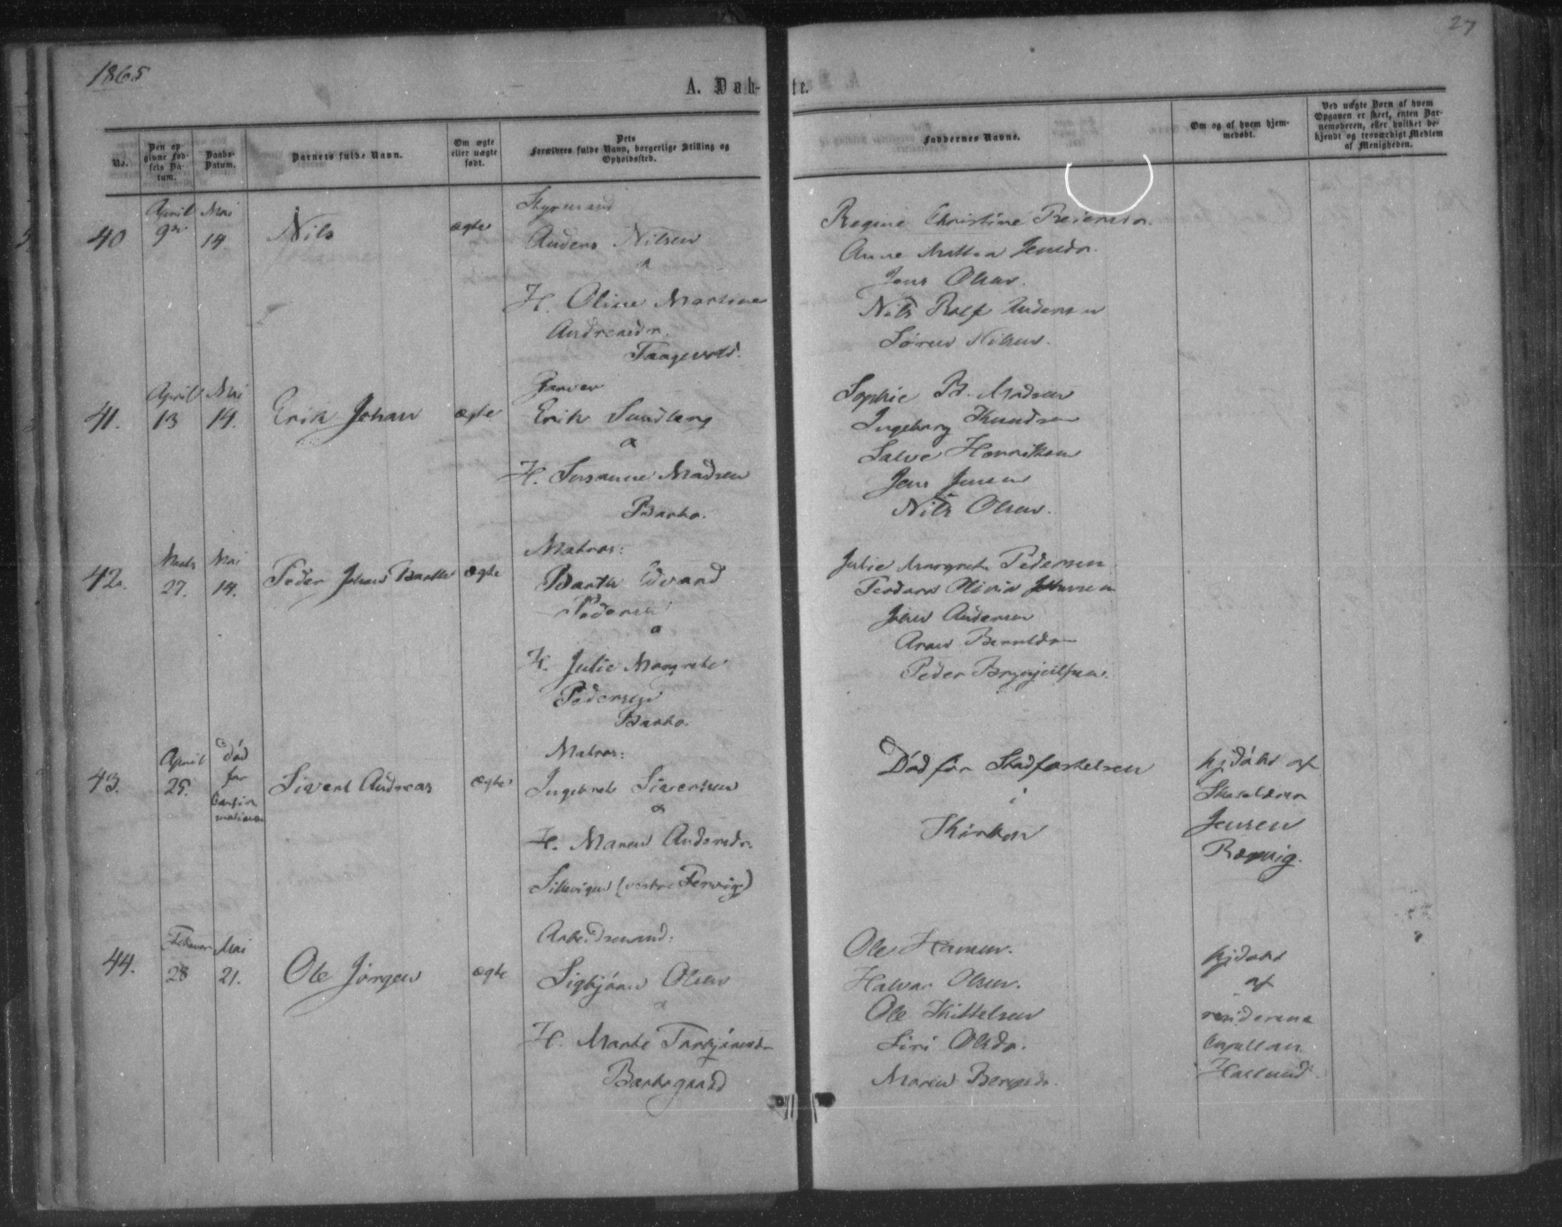 1865
27
A. Døb-te.
No.
Den opgivne Fødsels Datum.
Daabs-Datum.
Barnets fulde Navn.
Om ægte eller uægte født.
Dets Forældres fulde Navn, borgerlige Stilling og Opholdssted.
Faddernes Navne.
Om og af hvem hjemmedøbt.
Ved uægte Børn af hvem Opgaven er skeet, enten Barnemoderen, eller hvilket bekjendt og troværdigt Medlem af Menigheden.
40
April
9de
Mai
14
Nils
ægte
Styrmand
Anders Nilsen
a
H. Oline Martine
Andreasdr.
Regine Christine
Anne Jensdr.
Jens Olsen.
Nils Rolf Andersen
Søren Nilsen.
41.
April
13
Mai
14.
Erik Johan
ægte
Garver
Erik Sundberg
a
H. Susanne Madsen
Barbo.
Sophie B. Madsen
Ingeborg Knudsen
Salve Henriksen
Jens Jensen
Nils Olsen.
42.
Marts
27.
Mai
14.
Peder Johan
ægte
Matros:
Edvard
Pedersen
a
H. Julie Margrethe
Pedersen
Barbo
Julie Margrethe Pedersen
Olivia
Andersen
Peder
43.
April
25.
død
før
Confirmationen
Sivert Andreas
ægte
Matros:
Ingebret Sivertsen
a
H. Maren Andersdr.
(vestre
Død før Stadfæstelsen
i
Kirken
hjdøbt af
Jensen
44.
Februar
28
Mai
21.
Ole Jørgen
ægte
Arbeidsmand:
Sigbjørn Olsen
a
H. Marthe
Barbogaard
Ole Hansen.
Halvor Olsen.
Ole Kittelsen
Siri Olsdr.
Maren
hjdøbt
af
residerene
Capellan